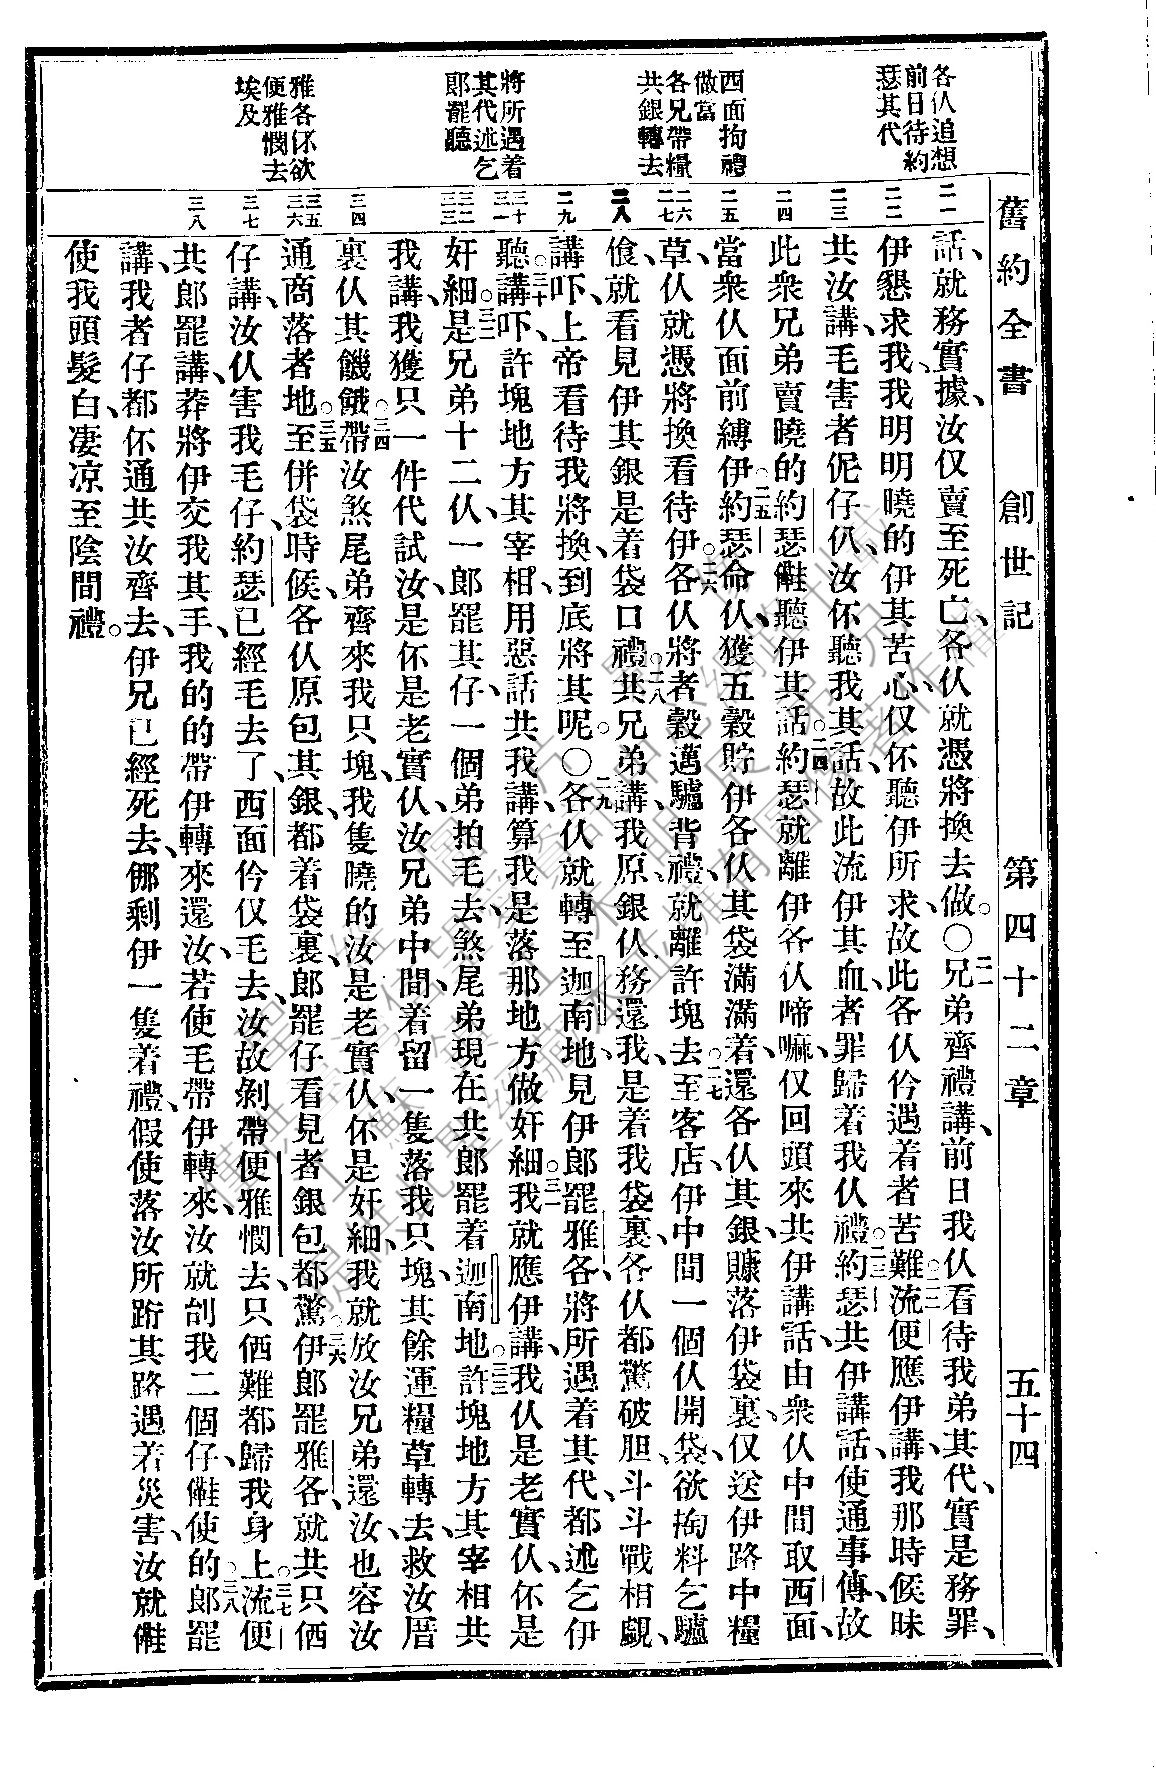 舊約全書　創世記　第四十二章　五十四
各仈追想
前日待約
瑟其代
西面拘禮
做當
各兄帶糧
共銀轉去
將所遇着
其代述乞
郎罷聽
雅各伓欲
便雅憫去
埃及
二一
二二
二三
二四
二五
二六
二七
二八
二九
三十
三一
三二
三三
三四
三五
三六
三七
三八
話、就務實據、汝仅賣至死亡、各仈就憑將換去做。〇二一兄弟齊禮講、前日我仈看待我弟其代、實是務罪、
伊懇求我、我明明曉的伊其苦心、仅伓聽伊所求、故此各仈仱遇着者苦難。二二流便應伊講、我那時候昧
共汝講、毛害者伲仔仈、汝伓聽我其話、故此流伊其血、者罪歸着我仈禮。二三約瑟共伊講話、使通事傳、故
此衆兄弟賣曉的約瑟𠆧聽伊其話。二四約瑟就離伊各仈啼嘛、仅回頭來共伊講話、由衆仈中間取西面、
當衆仈面前縛伊。二五約瑟命仈、獲五穀貯伊各仈其袋滿滿、着還各仈其銀、賺落伊袋裏、仅送伊路中糧
草、仈就憑將換看待伊。二六各仈將者穀邁驢背禮、就離許塊去。二七至客店、伊中間一個仈開袋、欲掏料乞驢
飡、就看見伊其銀是着袋口禮。二八共兄弟講、我原銀仈務還我、是着我袋裏、各仈都驚破胆、斗斗戰相覷、
講、吓、上帝看待我將換、到底將其呢。〇二九各仈就轉至迦南地、見伊郎罷雅各、將所遇着其代都述乞伊
聽、講、三十吓、許塊地方其宰相用惡話共我講、算我是落那地方做奸細。三一我就應伊講、我仈是老實仈、伓是
奸細。三二是兄弟十二仈、一郎罷其仔、一個弟拍毛去、煞尾弟現在共郎罷着迦南地。三三許塊地方其宰相共
我講、我獲只一件代試汝是伓是老實仈、汝兄弟中間着留一隻落我只塊、其餘運糧草轉去、救汝厝
裏仈其饑餓。三四帶汝煞尾弟齊來我只塊、我隻曉的汝是老實仈、伓是奸細、我就放汝兄弟還汝、也容汝
通商落者地。三五至併袋時候、各仈原包其銀都着袋裏、郎罷仔看見者銀包都驚。三六伊郎罷雅各就共只価
仔講、汝仈害我毛仔、約瑟已經毛去了、西面仱仅毛去、汝故剝帶便雅憫去、只価難都歸我身上。三七流便
共郎罷講、莽將伊交我其手、我的的帶伊轉來還汝、若使毛帶伊轉來、汝就刣我二個仔𠆧使的。三八郎罷
講、我者仔都伓通共汝齊去、伊兄已經死去、㑚剩伊一隻着禮、假使落汝所跱其路遇着災害、汝就𠆧
使我頭髮白、凄凉至陰間禮。